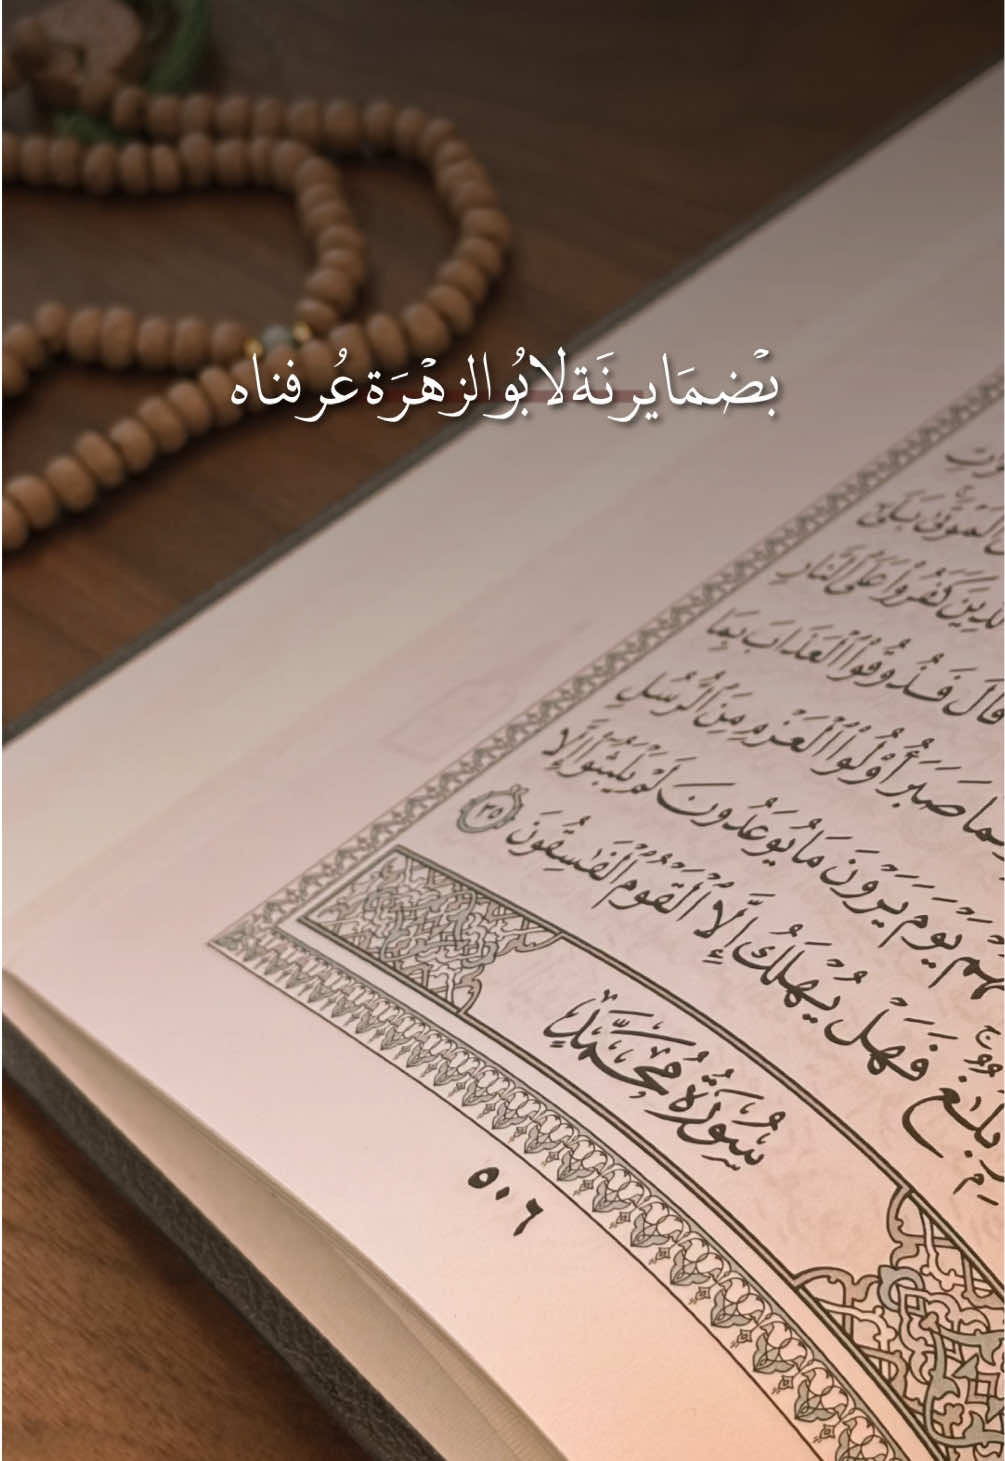 بْضمَايرنَة لابُو الزهْرَة عُرفناه
الْمَوْتَىٰ بَلَىٰ
الَّذِينَ كَفَرُوا عَلَى النَّارِ
قَالَ فَذُوقُوا الْعَذَابَ بِمَا
كَمَا صَبَرَ أُوْلُوا الْعَزْمِ مِنَ الرُّسُلِ
يَوْمَ يَرَوْنَ مَا يُوعَدُونَ لَمْ يَلْبَثُوا إِلَّا
بَلَٰغٌ فَهَلْ يُهْلَكُ إِلَّا الْقَوْمُ الْفَٰسِقُونَ ٣٥
سُورَةُ مُحَمَّدٍ
٥٠٦